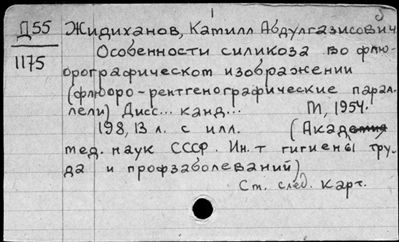 Д55 Жидиханов, Камилл Абдулгазисович
1175 Особенности силикоза во флю-
орографическом изображении
(флюоро-рентгенографические парал-
лели) Дисс... канд... М, 1954.
198, 13 л. с илл. (Академия
мед. наук СССР. Ин-т гигиены тру-
да и профзаболеваний)
См. след. карт.